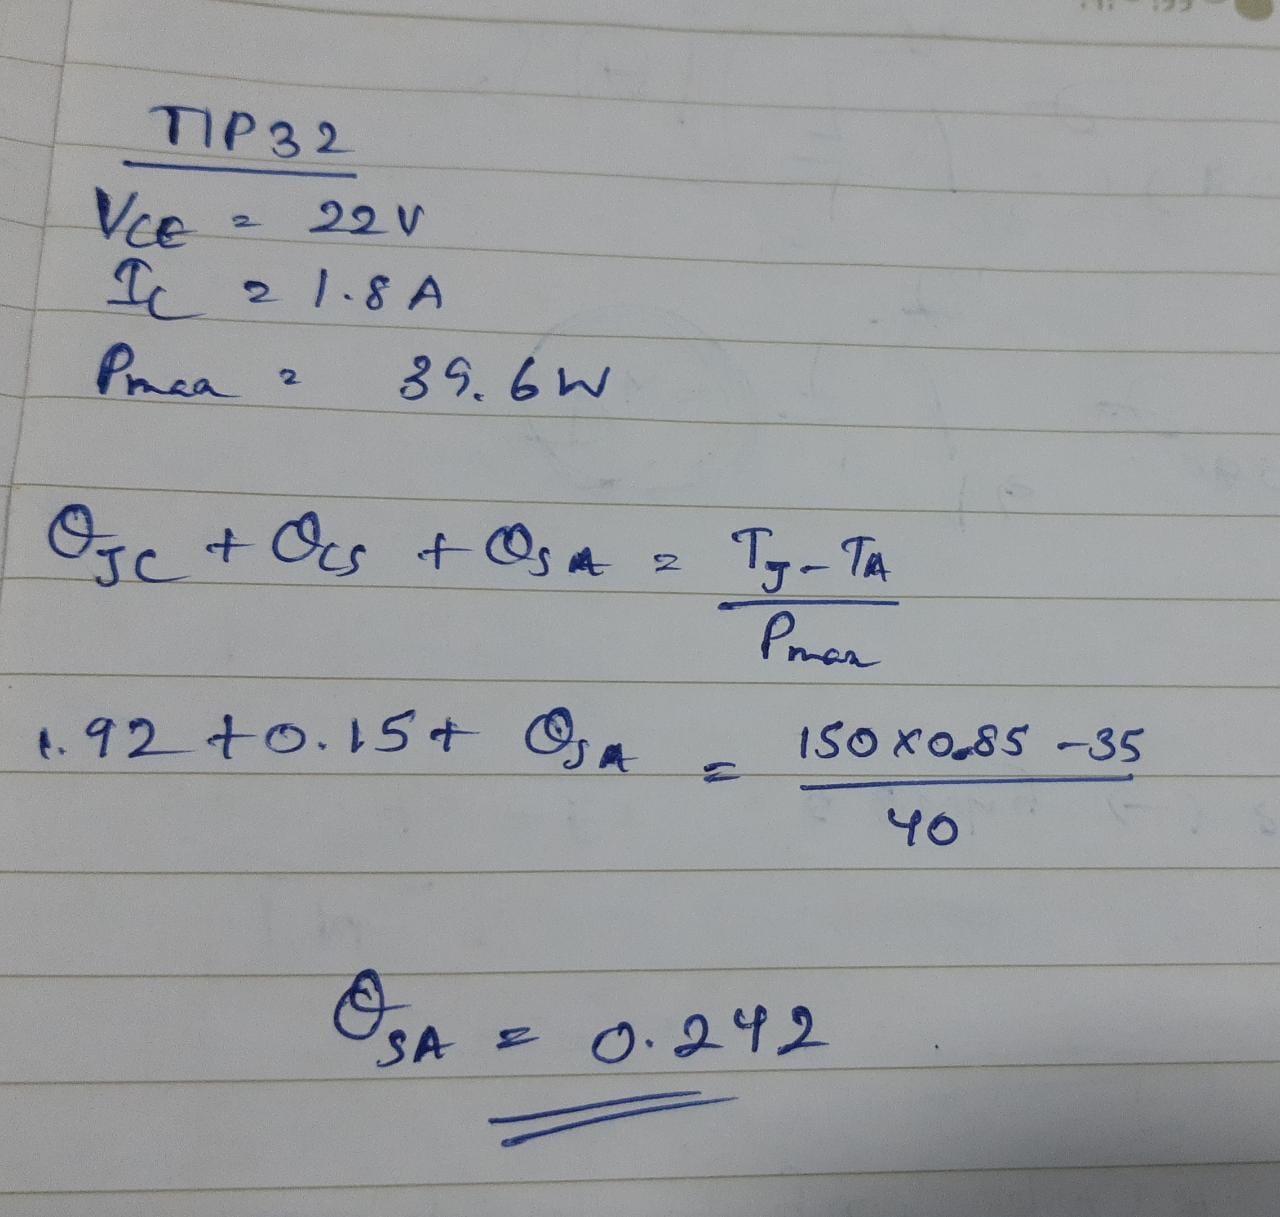 TIP32
VCE = 22V
IC = 1.8 A
Pmax = 39.6W
θJC + θCS + θSA = TJ - TA
Pmax
1.92 + 0.15 + θSA = 150 x 0.85 - 35
40
θSA = 0.242